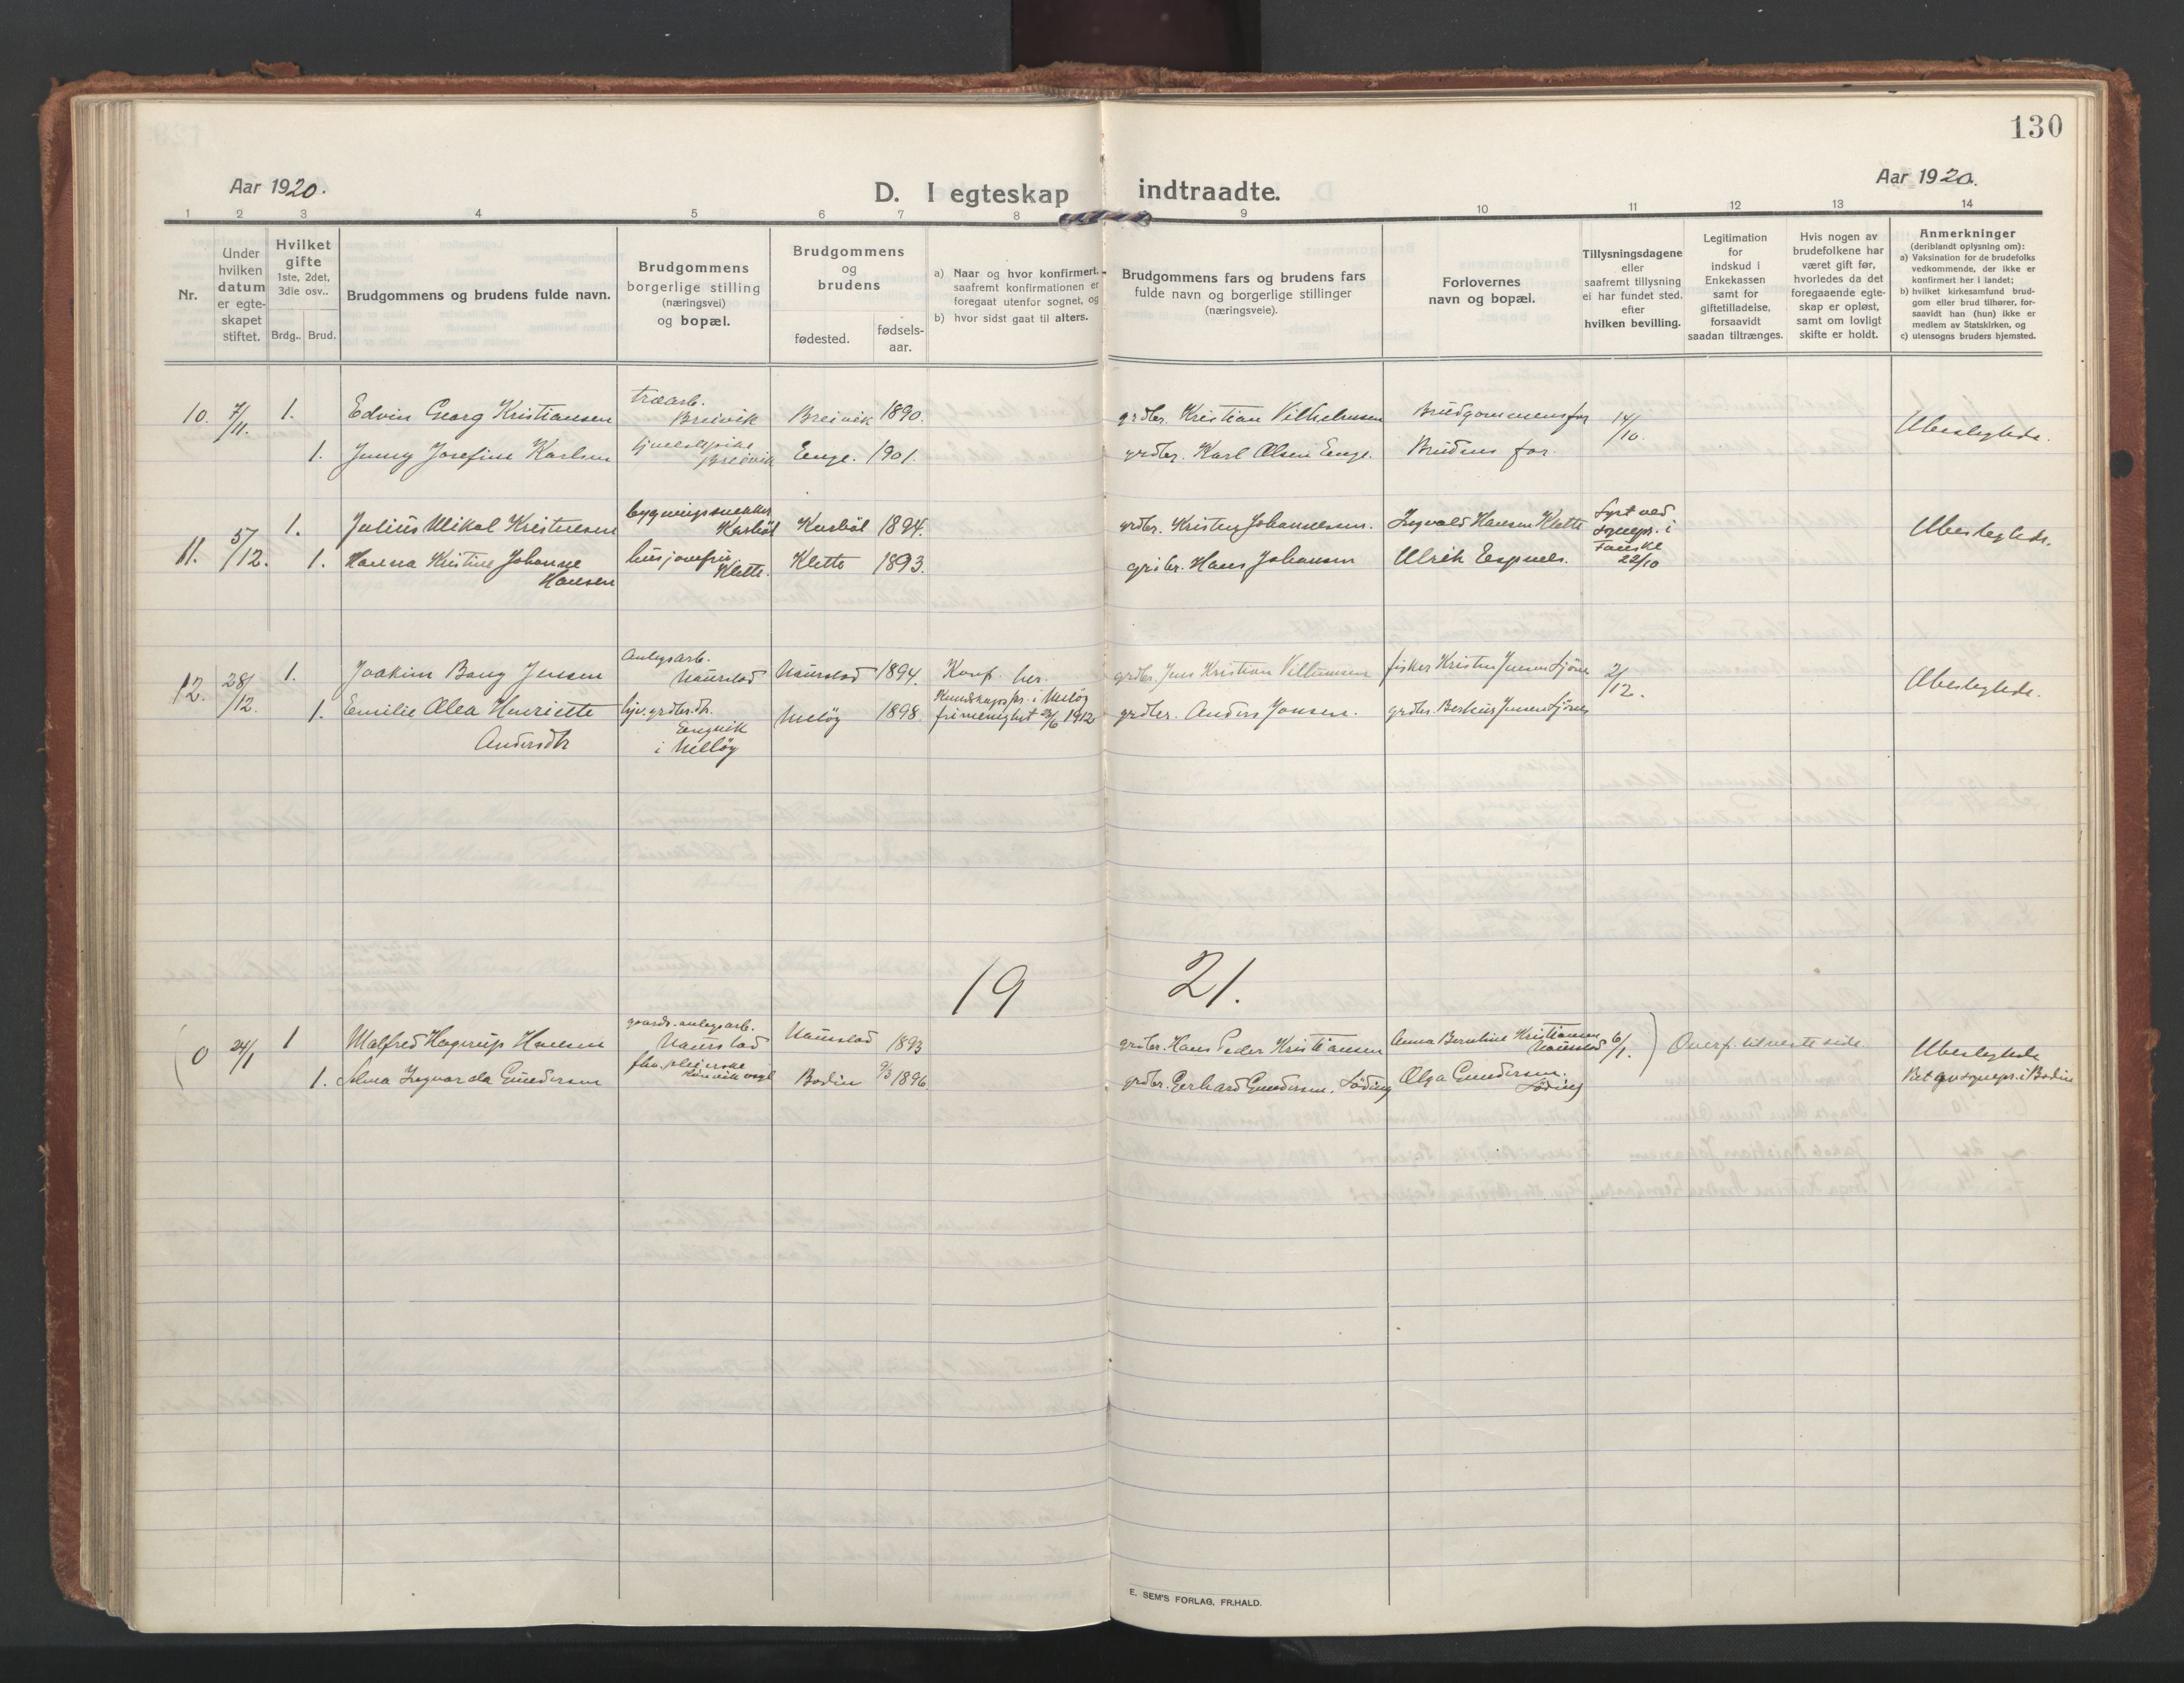 130
Aar 1920.
D. I egteskap indtraadte.
Aar 1920.
1 2 3 4 5 6 7 8 9 10 11 12 13 14
Nr.
Under
hvilken
datum
er egte-
skapet
stiftet.
Hvilket
gifte
1ste, 2det,
3die osv..
Brdg.. Brud.
Brudgommens og brudens fulde navn.
Brudgommens
borgerlige stilling
(næringsvei)
og bopæl.
Brudgommens
og
brudens
fødested.
fødsels-
aar.
a) Naar og hvor konfirmert,
saafremt konfirmationen er
foregaat utenfor sognet, og
b) hvor sidst gaat til alters.
Brudgommens fars og brudens fars
fulde navn og borgerlige stillinger
(næringsveie).
Forlovernes
navn og bopæl.
Tillysningsdagene
eller
saafremt tillysning
ei har fundet sted.
efter
hvilken bevilling.
Legitimation
for
indskud i
Enkekassen
samt for
giftetilladelse,
forsaavidt
saadan tiltrænges.
Hvis nogen av
brudefolkene har
været gift før,
hvorledes da det
foregaaende egte-
skap er opløst,
samt om lovligt
skifte er holdt.
Anmerkninger
(deriblandt oplysning om):
a) Vaksination for de brudefolks
vedkommende, der ikke er
konfirmert her i landet;
b) hvilket kirkesamfund brud-
gom eller brud tilhører, for-
saavidt han (hun) ikke er
medlem av Statskirken, og
c) utensogns bruders hjemsted.
10. 7/11. 1. Edvin Georg Kristiansen træarb. Breivik Breivik 1890. grdbr. Kristian Vilhelmsen Brudgommens far 14/10. Ubeslegtede.
1. Jenny Josefine Karlsen Breivik Enge. 1901. grdbr. Karl Olsen Enge. Brudens far.
11. 5/12. 1. Julius Mikal Kristensen bygningssnekker Kusböl Kusböl 1894. grdbr. Kristen Johannesen. Ingvald Hansen Klette Lyst ved sognepr. i Fauske 22/10 Ubeslegtede.
1. Hanna Kristine Johanne Hansen husjomfru Klette. Klette 1893. grdbr. Hans Johansen Ulrik Espnes.
12. 28/12. 1. Joakim Bang Jensen Anlegsarb. Naurstad Naurstad 1894. Konf. her. grdbr. Jens Kristian Villumsen fisker Kristen Jensen 2/12. Ubeslegtede.
1. Emilie Olea Henriette Andersdtr hjv. grdbr.dtr. Engavik i Meløy Meløy 1898. Kundskapspr. i Meløy frimenighet 23/6 1912 grdbr. Anders Jonsen. grdbr. Berhus Jensen
19 21.
(0 24/1 1 Malfred Hagerup Hansen gaards. anlegsarb. Naurstad Naurstad 1893 grdbr. Hans Peder Kristiansen Anna Berntine Kristiansen Naurstad 6/1.) Overf. til neste side. Ubeslegtede
1. Selma Ingvarda Gundersen pleierske Rönvik Bodin 9/3 1896. grdbr. Gerhard Gundersen, Löding Olga Gundersen. Löding Viet av sognepr. i Bodin
E. SEM'S FORLAG, FR.HALD.